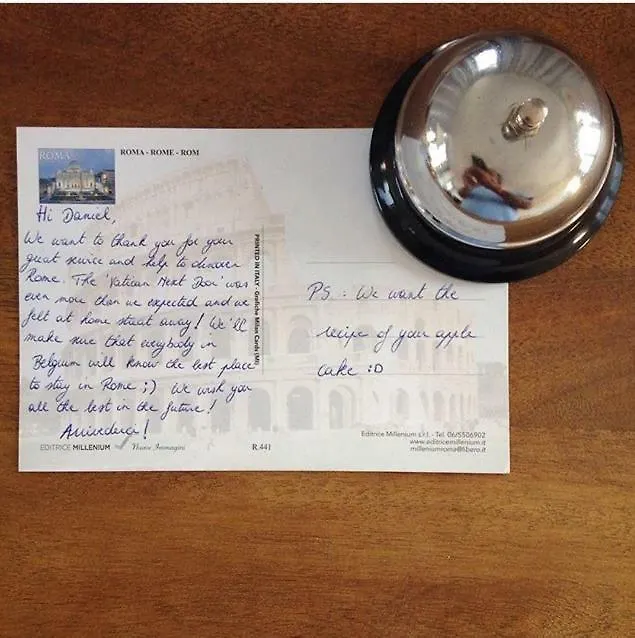 ROMA
ROMA - ROME - ROM
Hi Daniel,
We want to thank you for your
great service and help to discover
Rome. The 'Vatican Next Door' was
even more than we expected and we
felt at home straat away! We'll
make sure that everybody in
Belgium will know the best place
to stay in Rome ;) We wish you
all the best in the future!
Arrivederci!
EDITRICE MILLENIUM
Nuove Immagini
R.441
PRINTED IN ITALY - Grafiche Milan Cards (MI)
PS.: We want the
recipe of your apple
cake :D
Editrice Millenium s.r.l. - Tel. 06/5506902
www.editricemillenium.it
milleniumroma@libero.it